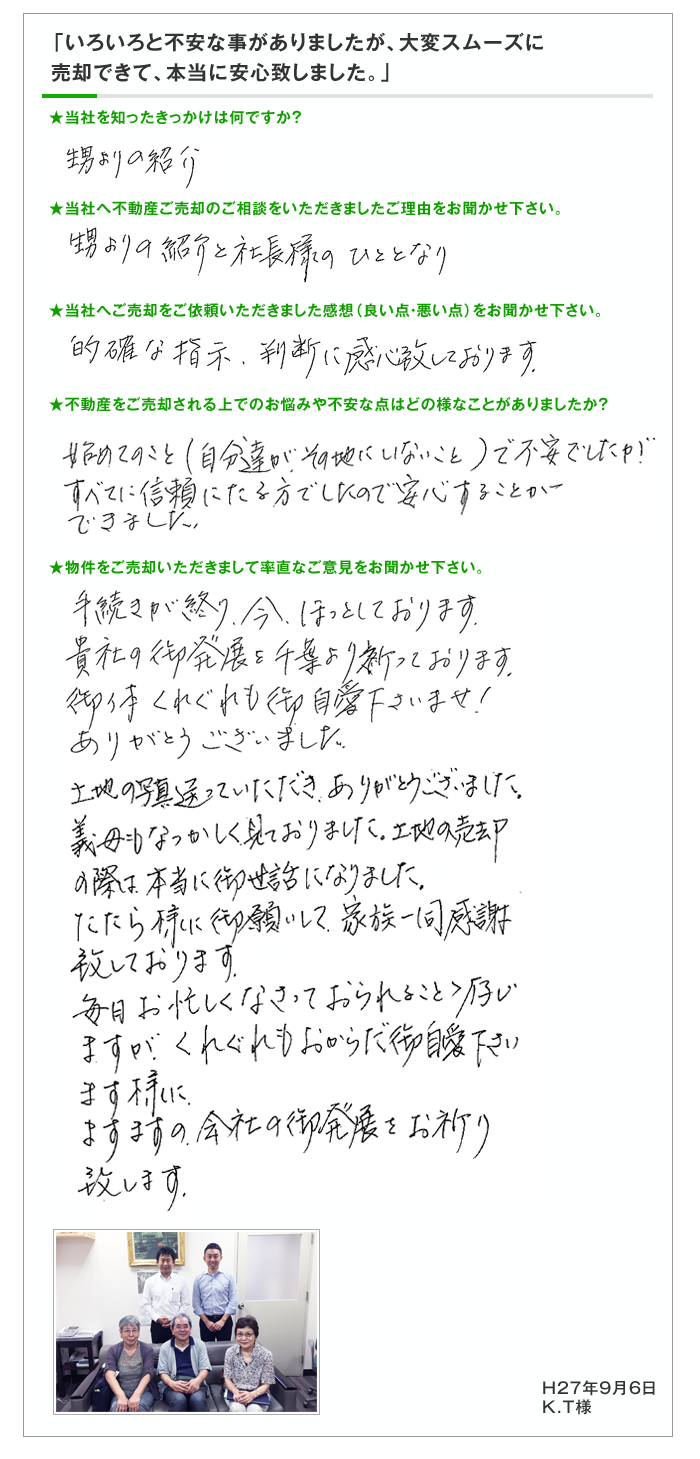 「いろいろと不安な事がありましたが、大変スムーズに
売却できて、本当に安心致しました。」
★当社を知ったきっかけは何ですか？
甥よりの紹介
★当社へ不動産ご売却のご相談をいただきましたご理由をお聞かせ下さい。
甥よりの紹介と社長様の ひととなり
★当社へご売却をご依頼いただきました感想（良い点・悪い点）をお聞かせ下さい。
的確な指示、判断に感心致しております。
★不動産をご売却される上でのお悩みや不安な点はどの様なことがありましたか？
始めてのこと（自分達が、その地にいないこと）で不安でしたが
すべてに信頼にたる方でしたので安心することが
できました。
★物件をご売却いただきまして率直なご意見をお聞かせ下さい。
手続きが終り、今、ほっとしております。
貴社の御発展を千葉より祈っております。
御体くれぐれも御自愛下さいませ！
ありがとうございました。
土地の写真送っていただき、ありがとうございました。
義母もなつかしく見ておりました。土地の売却
の際は、本当に御世話になりました。
たたら様に御願いして、家族一同感謝
致しております。
毎日お忙しくなさっておられること＞存じ
ますが、くれぐれもおからだ御自愛下さい
ます様に、
ますますの、会社の御発展をお祈り
致します。
H27年9月6日
K.T様